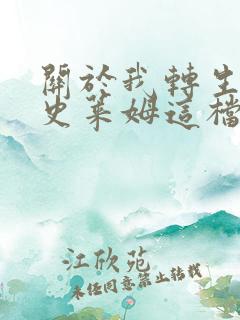 關於我轉生
史萊姆這檔
江欣苑
未经同意禁止转载